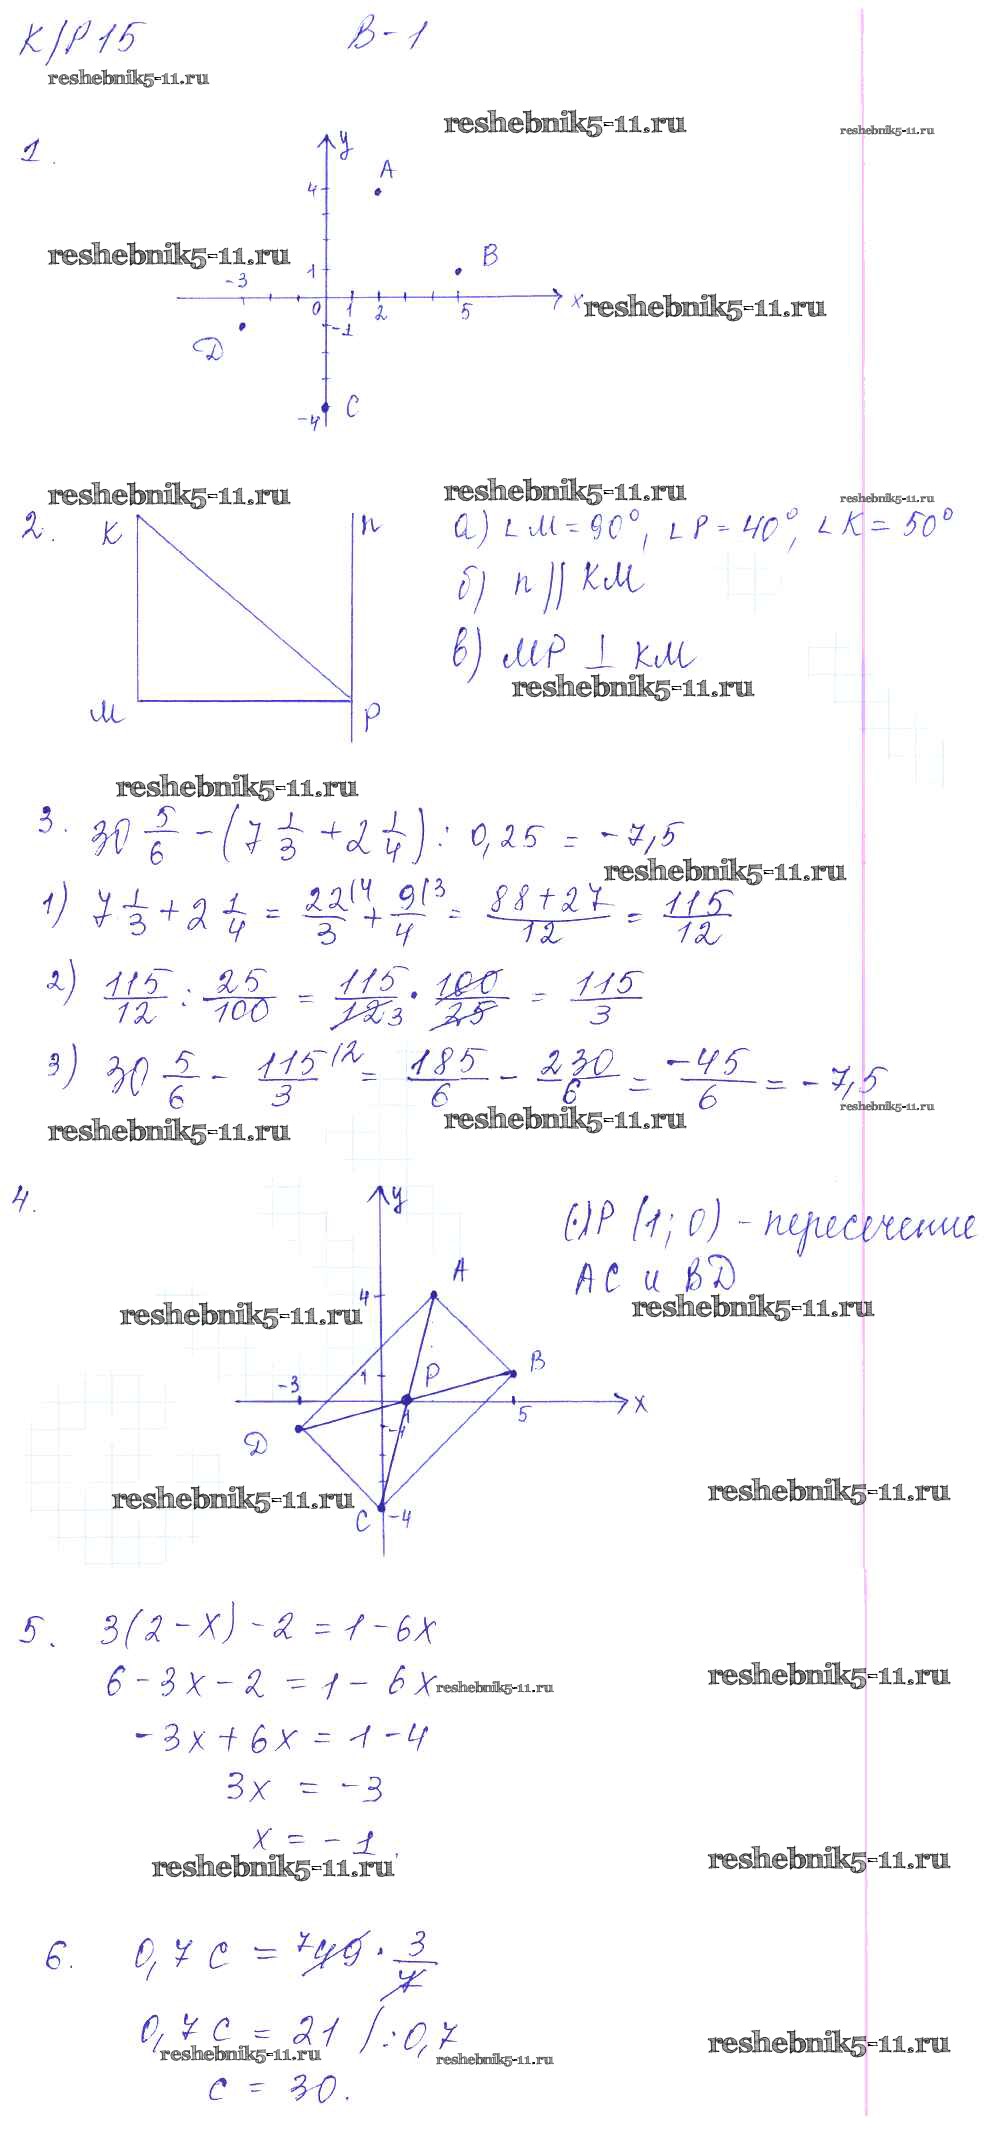 К/Р 15 В-1
reshebnik5-11.ru
reshebnik5-11.ru reshebnik5-11.ru
1. y
A
4
reshebnik5-11.ru B
-3 1
0 1 2 5 x reshebnik5-11.ru
-1
D
-4 C
reshebnik5-11.ru reshebnik5-11.ru reshebnik5-11.ru
2. K n а) ∠M = 90°, ∠P = 40°, ∠K = 50°
б) n || KM
в) MP ⊥ KM
reshebnik5-11.ru
M P
reshebnik5-11.ru
3. 30 5/6 - (7 1/3 + 2 1/4) : 0,25 = -7,5
reshebnik5-11.ru
1) 7 1/3 + 2 1/4 = 22/3 (4 + 9/4 (3 = (88+27)/12 = 115/12
2) 115/12 : 25/100 = 115/12 3 · 100/25 = 115/3
3) 30 5/6 - 115/3 (2 = 185/6 - 230/6 = -45/6 = -7,5
reshebnik5-11.ru reshebnik5-11.ru reshebnik5-11.ru
4. y (·)P (1; 0) - пересечение
A AC и BD
4
reshebnik5-11.ru reshebnik5-11.ru
-3 1 P B
1 5 x
D -1
reshebnik5-11.ru reshebnik5-11.ru
C -4
5. 3(2-x) - 2 = 1 - 6x
6 - 3x - 2 = 1 - 6x reshebnik5-11.ru reshebnik5-11.ru
-3x + 6x = 1 - 4
3x = -3
x = -1.
reshebnik5-11.ru reshebnik5-11.ru
6. 0,7 c = 7 49 · 3/7
0,7 c = 21 | : 0,7
reshebnik5-11.ru reshebnik5-11.ru reshebnik5-11.ru
c = 30.